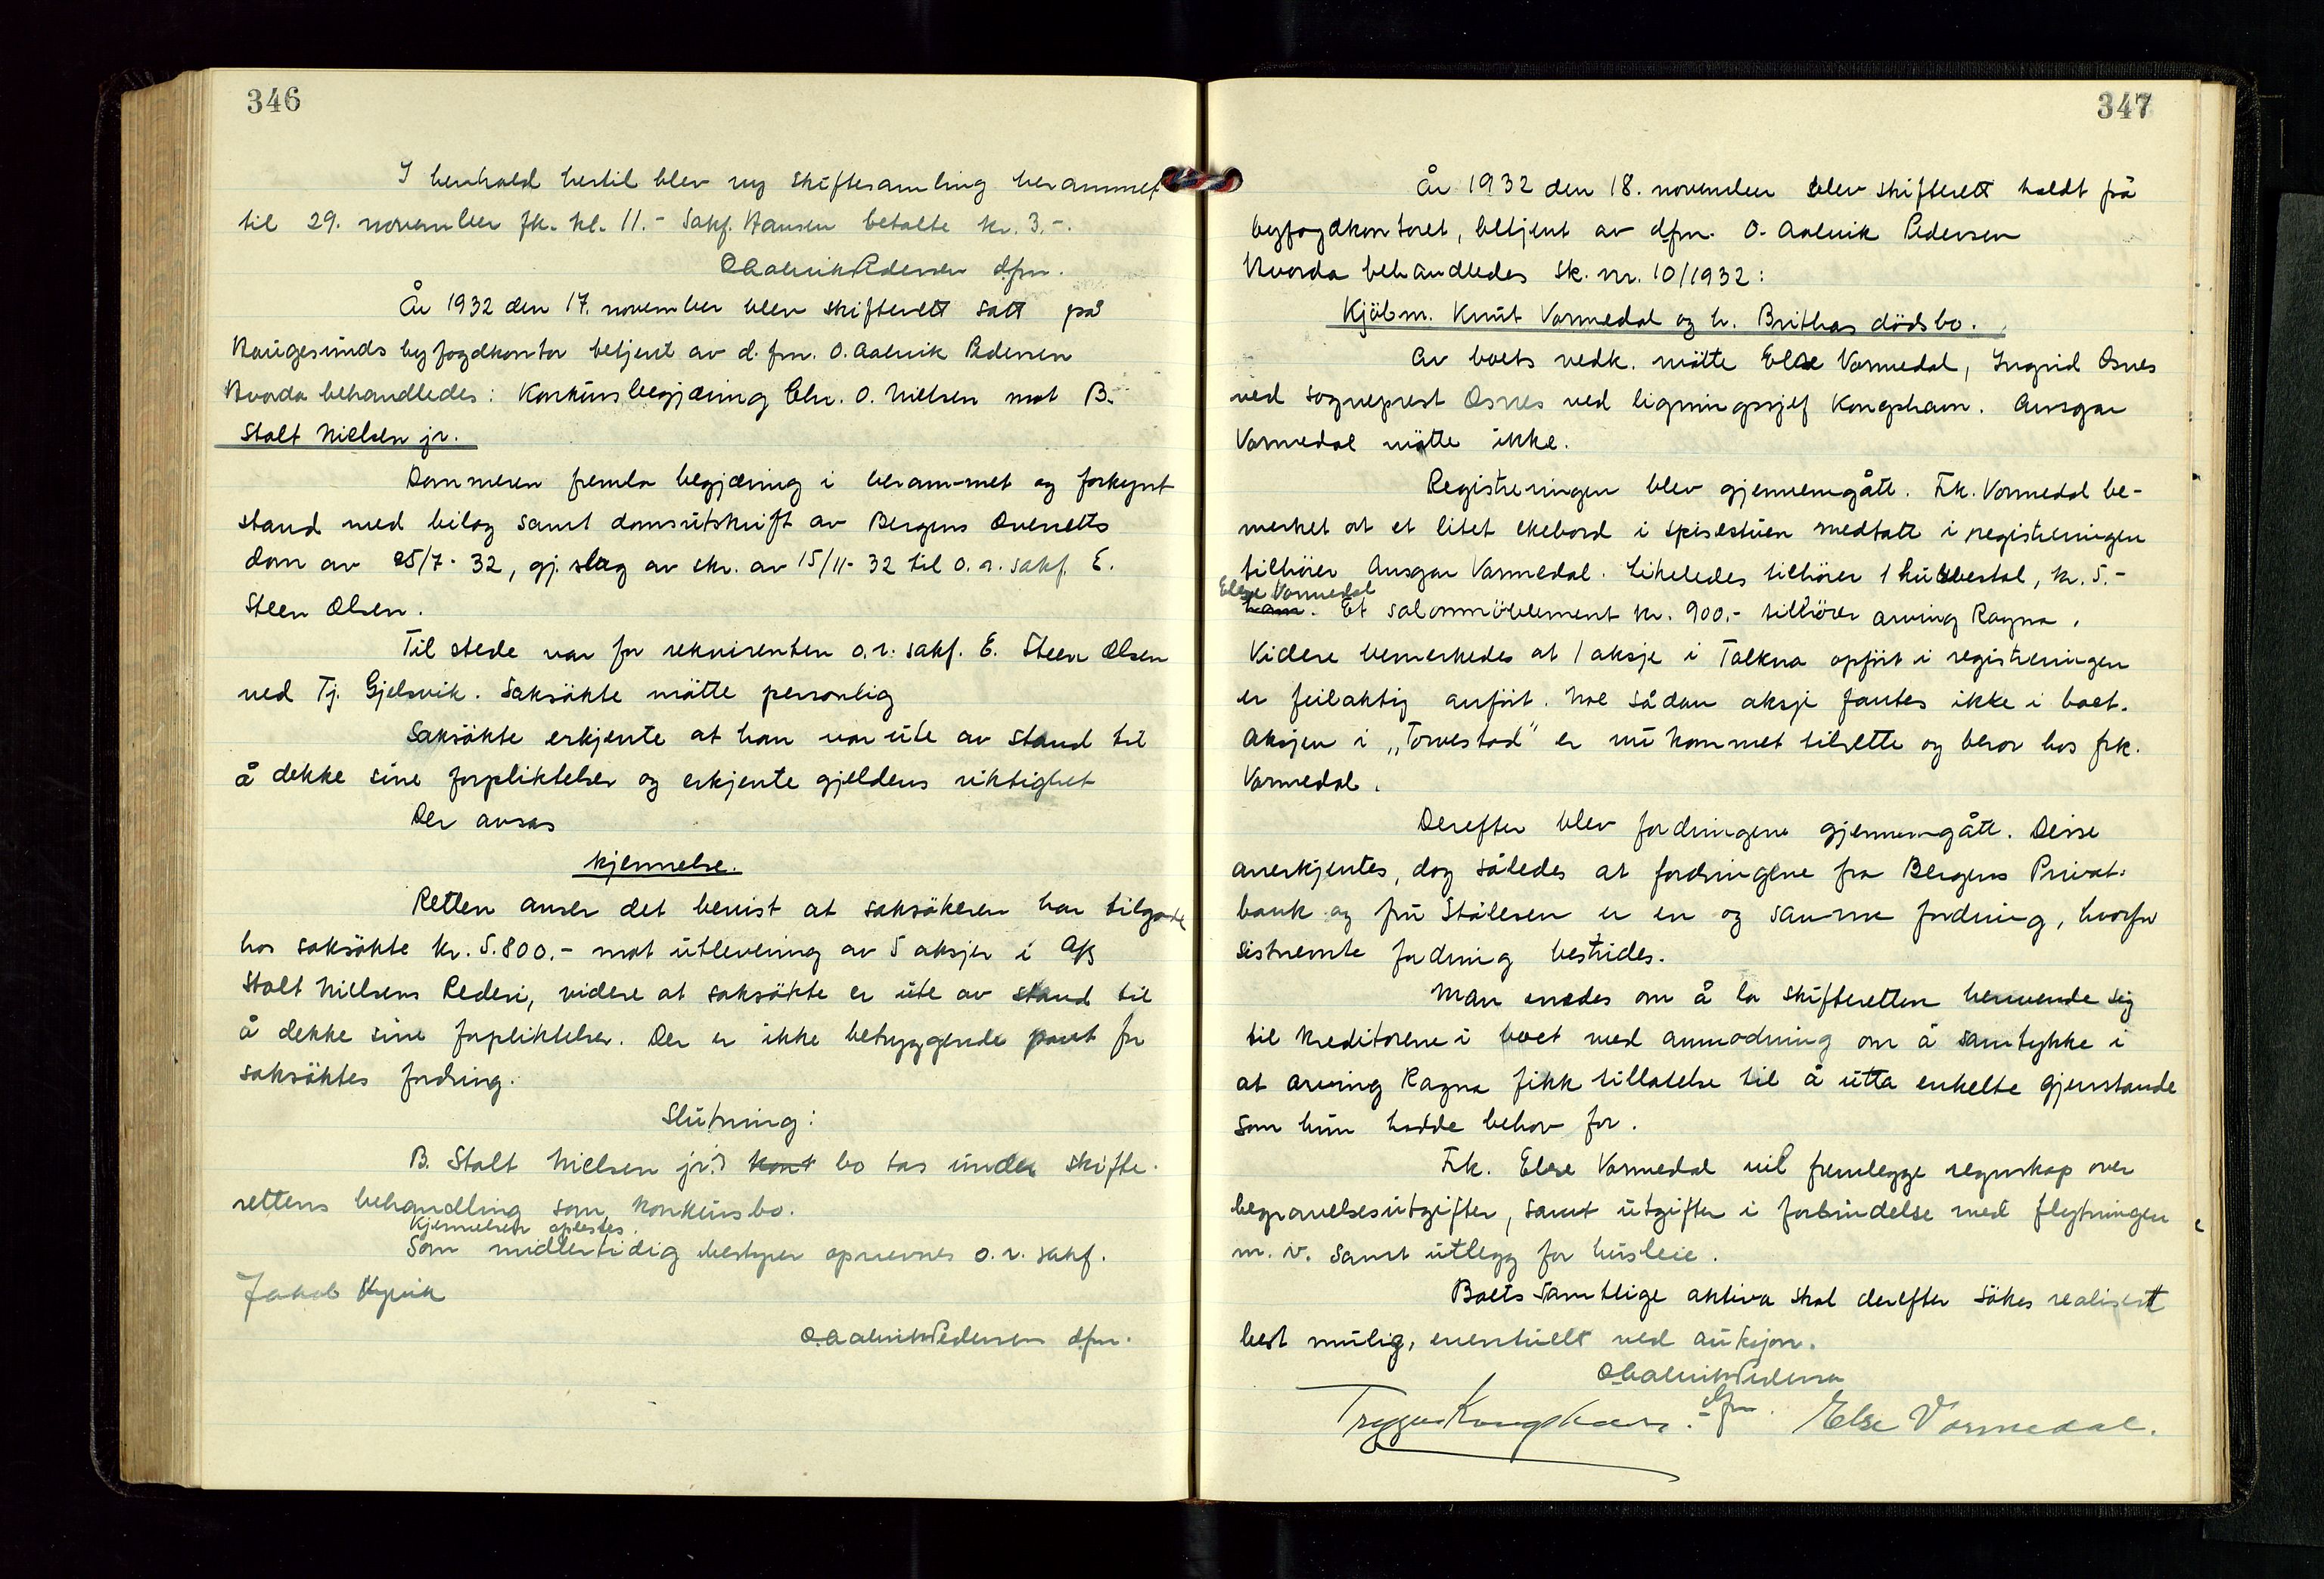 346
I henhold hertil blev ny skiftesamling berammet
til 29. november fk. kl. 11.- Sakf. Hansen betalte kr. 3.-.
O Aalvik Pedersen dfm.
År 1932 den 17. november blev skifterett satt på
Haugesunds byfogdkontor betjent av d. fm. O. Aalvik Pedersen
Hvorda behandledes: Konkursbegjæring Chr. O. Nielsen mot B.
Stolt Nielsen jr.
Dommeren fremla begjæring i beram-met og forkynt
stand med bilag samt domsutskrift av Bergens Overretts
dom av 25/7-32, gj. slag av skr. av 15/11-32 til o. r. sakf. E.
Steen Olsen.
Til stede var for rekvirenten o.r. sakf. E. Steen Olsen
ved Tj. Gjelsvik. Saksökte mötte personlig
Saksökte erkjente at han var ute av stand til
å dekke sine forpliktelser og erkjente gjeldens riktighet
Der avsas
kjennelse.
Retten anser det bevist at saksökeren har tilgode
hos saksökte kr. 5.800.- mot utlevering av 5 aksjer i A/S
Stolt Nielsens Rederi, videre at saksökte er ute av stand til
å dekke sine forpliktelser. Der er ikke betryggende pant for
saksöktes fordring.
Slutning:
B. Stolt Nielsen jr.s konk bo tas under skifte-
rettens behandling som konkursbo.
Kjennelsen oplestes.
Som midlertidig bestyrer opnevnes o. r. sakf.
Jakob Kyvik
O Aalvik Pedersen dfm.
347
År 1932 den 18. november blev skifterett holdt på
byfogdkontoret, betjent av dfm. O. Aalvik Pedersen
Hvorda behandledes sk. nr. 10/1932:
Kjöbm. Knut Vormedal og h. Brithas dödsbo.
Av boets vedk. mötte Else Vormedal, Ingrid Osnes
ved sogneprest Osnes ved ligningssjef Kongshavn. Ansgar
Vormedal mötte ikke.
Registreringen blev gjennemgått. Frk. Vormedal be-
merket at et litet ekebord i spisestuen medtatt i registreringen
tilhörer Ansgar Vormedal. Likeledes tilhörer 1 kubbestol, kr. 5.-
Else Vormedal
ham. Et salonmöblement kr. 900.- tilhörer arving Ragna.
Videre bemerkedes at 1 aksje i Talkna opfört i registreringen
er feilaktig anfört. Noe sådan aksje fantes ikke i boet.
Aksjen i „Torvestad" er nu kommet tilrette og beror hos frk.
Vormedal.
Derefter blev fordringene gjennemgått. Disse
anerkjentes, dog således at fordringene fra Bergens Privat-
bank og fru Stålesen er en og samme fordring, hvorfor
sistnevnte fordring bestrides.
Man enedes om å la skifteretten henvende sig
til kreditorene i boet med anmodning om å samtykke i
at arving Ragna fikk tillatelse til å utta enkelte gjenstande
som hun hadde behov for.
Frk. Else Vormedal vil fremlegge regnskap over
begravelsesutgifter, samt utgifter i forbindelse med flytningen
m. v. samt utlegg for husleie.
Boets samtlige aktiva skal derefter sökes realisert
best mulig, eventuelt ved auksjon.
O Aalvik Pedersen
dfm.
Trygve Kongshavn. Else Vormedal.